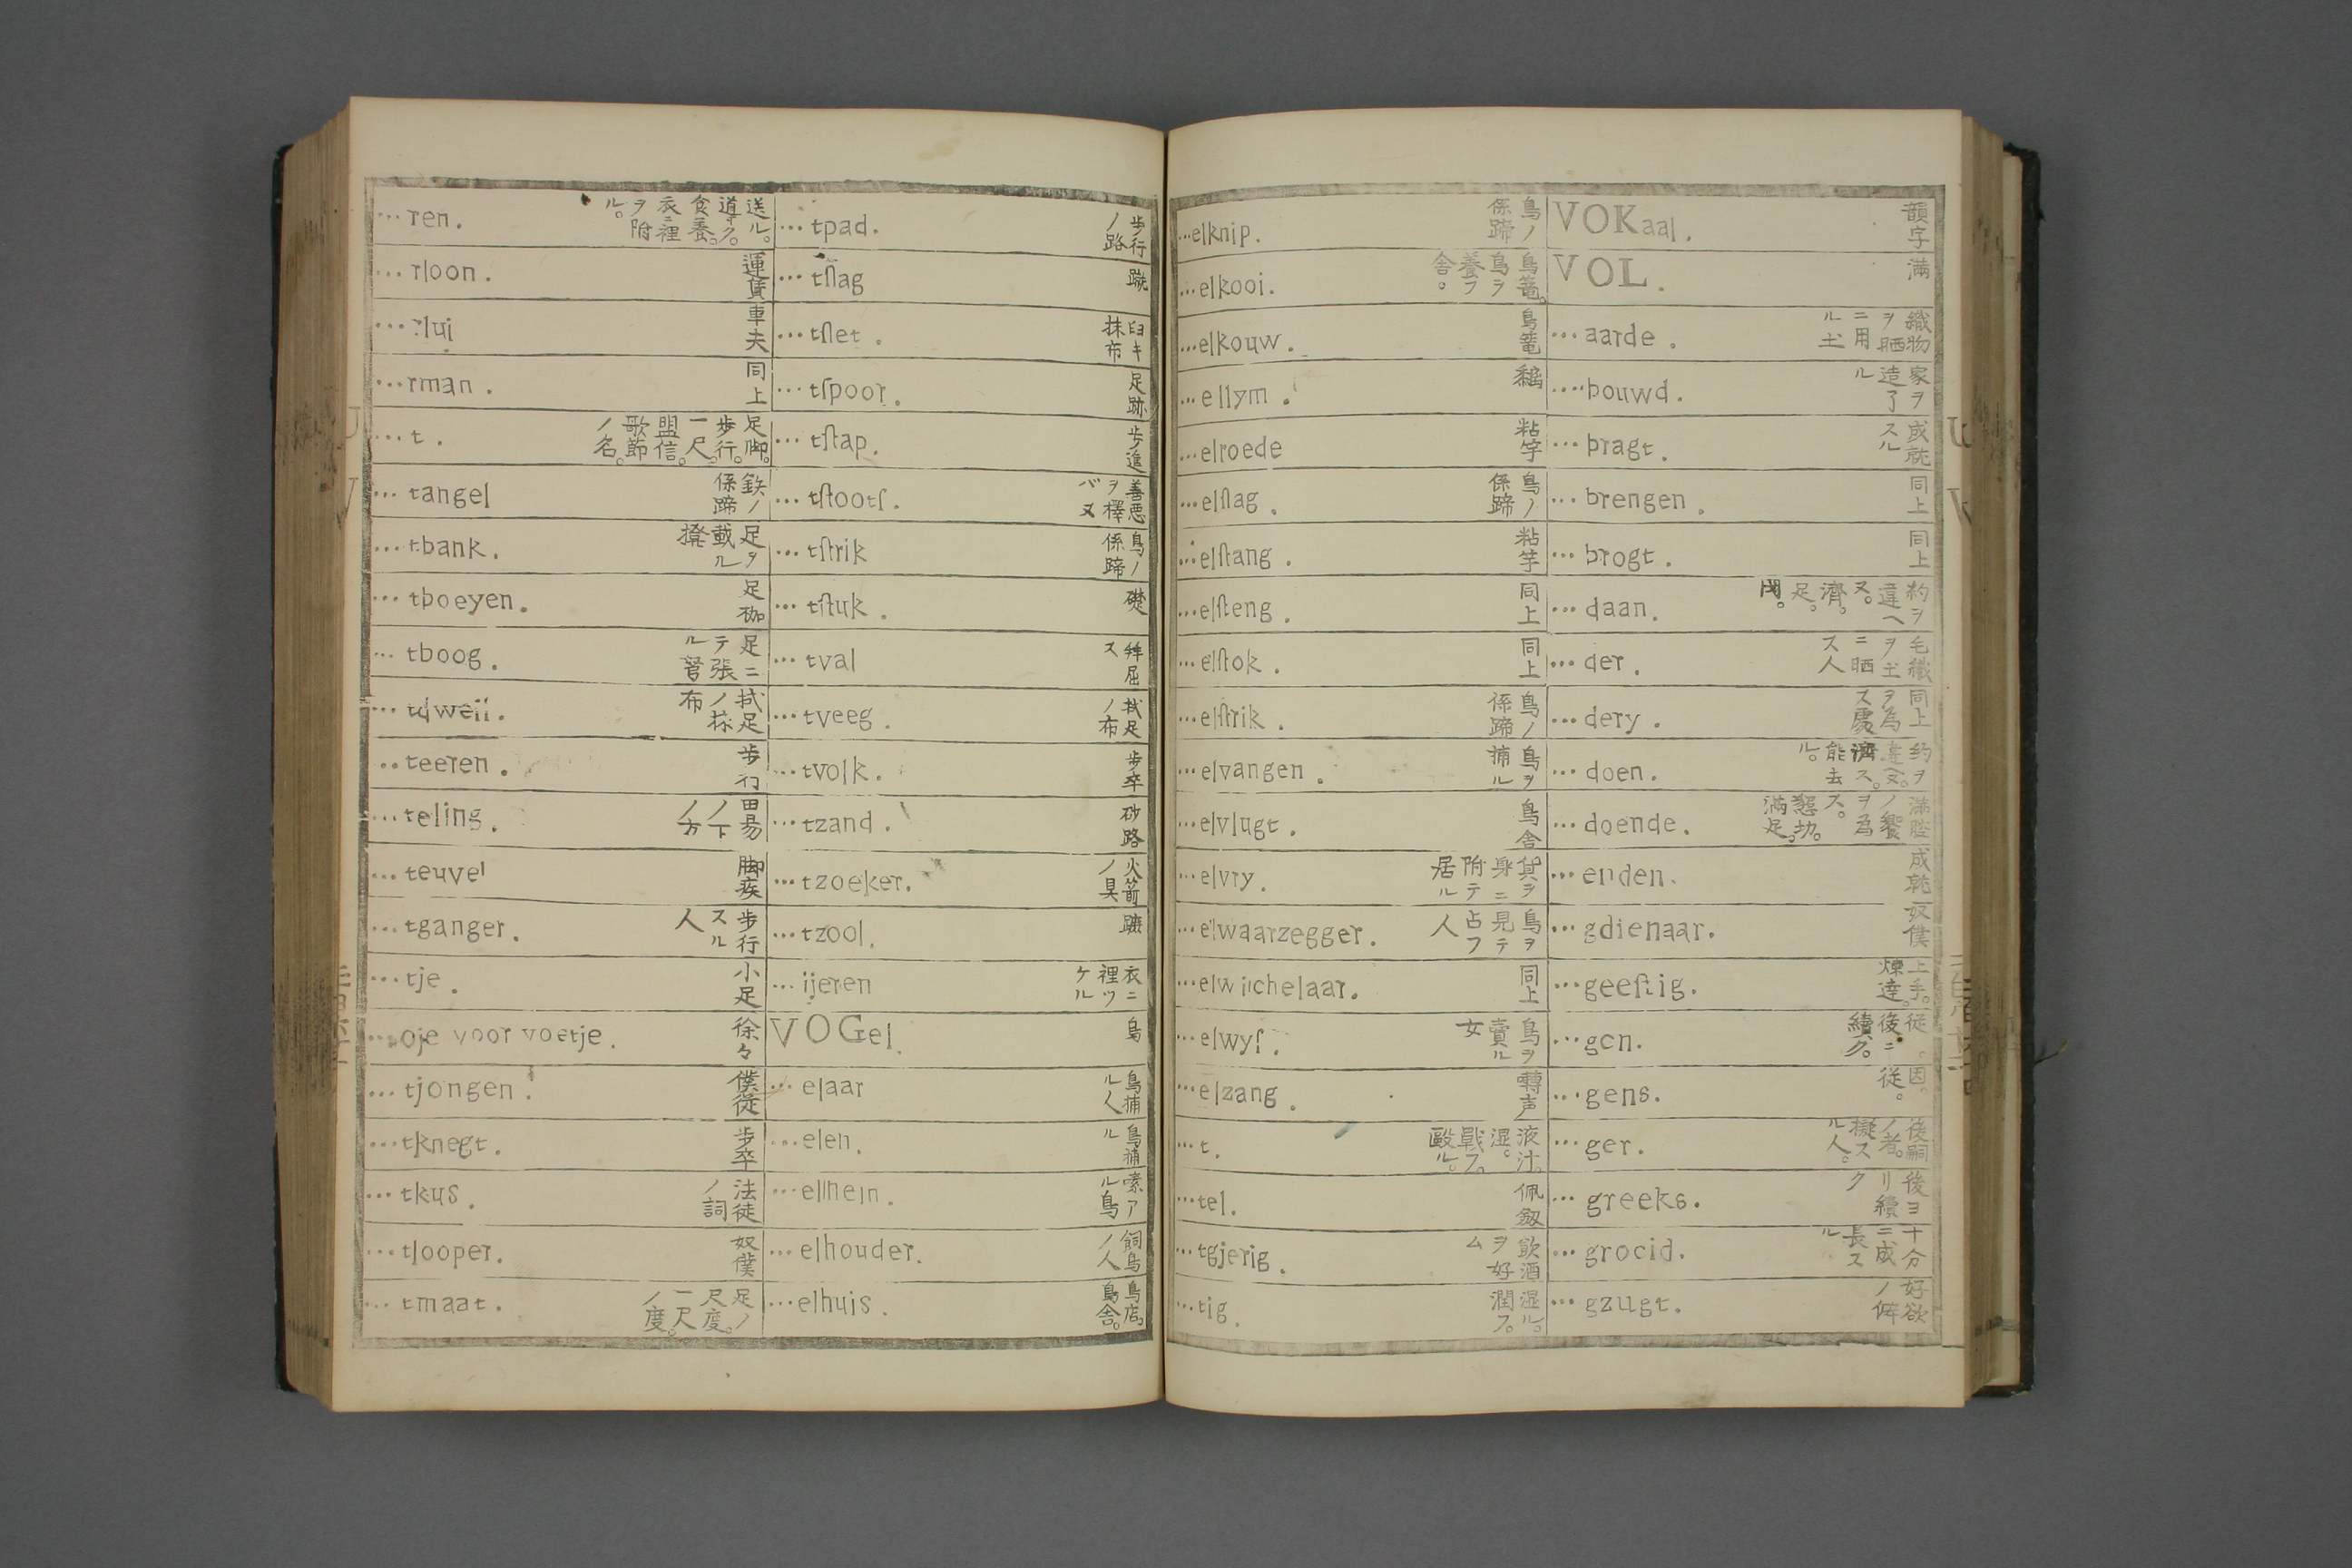 ...ren. 送ル。道キク。食養。衣裡ニ附ヲル。
...rloon. 運賃
...rlui 車夫
...rman. 同上
...t. 足脚。歩行。一尺。盟信。歌節ノ名。
...tangel 鉄ノ係蹄
...tbank. 足ヲ載ル櫈
...tboeyen. 足枷
...tboog. 足ニテ張ル弩
...tdweil. 拭足ノ抹布
..teeren. 歩行
...teling.
...teuvel 脚疾
...tganger. 歩行スル人
...tje. 小足
...oje voor voetje. 徐々
...tjongen. 僕從
...tknegt. 歩卒
...tkus. 法徒ノ詞
...tlooper. 奴僕
...tmaat. 足ノ尺度。一尺ノ度。
...tpad. 歩行ノ路
...tſlag 蹴
...tſlet. 臼キ抹布
...tſpoor. 足跡
...tſtap. 歩進
...tſtootſ. 善悪ヲ擇バヌ
...tſtrik 鳥ノ係蹄
...tſtuk. 礎
...tval 拜屈ス
...tveeg. 拭足ノ布
...tvolk. 歩卒
...tzand. 砂路
...tzoeker. 火箭ノ具
...tzool. 蹠
...ijeren 衣ニ裡ツケル
VOGel. 鳥
...elaar 鳥捕ル人
...elen. 鳥捕ル
...elhein. 嗉アル鳥
...elhouder. 飼鳥ノ人
...elhuis. 鳥店。鳥舎。
...elknip. 鳥ノ係蹄
...elkooi. 鳥篭。鳥ヲ養フ舎。
...elkouw. 鳥篭
...ellym. 黐
...elroede 粘竿
...elſlag. 鳥ノ係蹄
...elſtang. 粘竿
...elſteng. 同上
...elſtok. 同上
...elſtrik. 鳥ノ係蹄
...elvangen. 鳥ヲ捕ル
...elvlugt. 鳥舎
...elvry. 貨ヲ身ニ附テ居ル
...elwaarzegger. 鳥ヲ見テ占フ人
...elwiichelaar. 同上
...elwyſ. 鳥ヲ賣ル女
...elzang. 囀声
...t. 液汁。湿。戰フ。毆ル。
...tel. 佩劔
...tgjerig. 飲酒ヲ好ム
...tig. 湿ル。潤フ。
VOKaal. 韻字
VOL. 滿
...aarde. 織物ヲ晒ニ用ル土
....bouwd. 家ヲ造了ル
...bragt. 成就スル
...brengen. 同上
...brogt. 同上
...daan. 約ヲ違ヘヌ。濟。足。
...der. 毛織ヲ土ニ晒ス人
...dery. 同上ヲ為ス處
...doen. 約ヲ違ヘヌ。濟ス。能去ル。
...doende. 滿足。
...enden. 成就
...gdienaar. 奴僕
...geeſtig. 上手。煉達。
...gen. 従。後ニ續ク。
...gens. 因。従。
...ger. 後嗣ノ者。擬スル人。
...greeks. 後ヨリ續ク
...grocid. 十分ニ成長スル
...gzugt. 好欲ノ